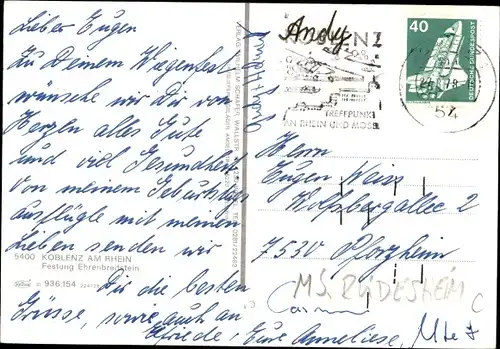 Lieber Eugen
Zu Deinem Wiegenfest
wünsche wir Dir von
Herzen alles Gute
und viel Gesundheit
Von meinem Geburtstags
ausflügle mit meinen
Lieben senden wir
Dir die besten
Grüsse, sowie auch an
Elfriede, Eure Anneliese,
5400 KOBLENZ AM RHEIN
Festung Ehrenbreitstein
936.154
Andy
TREFFPUNKT
AN RHEIN UND MOSEL
40
DEUTSCHE BUNDESPOST
54
Herrn
Eugen Weiss
Wolfsbergallee 2
7530 Pforzheim
MS. RÜDESHEIM